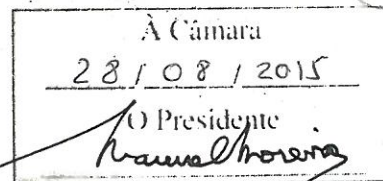 À Câmara
28 / 08 / 2015
O Presidente
Manuel Moreira